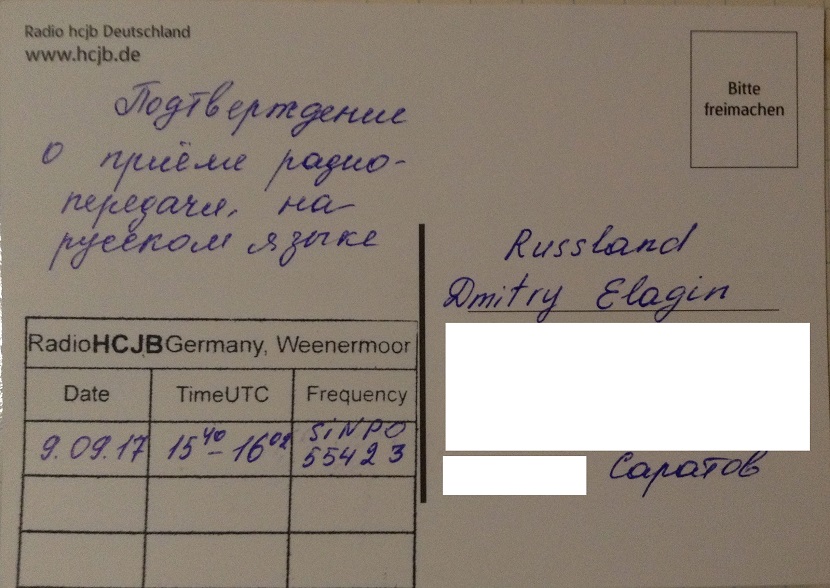 Radio hcjb Deutschland
www.hcjb.de
Bitte
freimachen
Подтверждение
о приёме радио-
передачи, на
русском языке
Russland
Dmitry Elagin
Саратов
RadioHCJBGermany, Weenermoor
Date TimeUTC Frequency
9.09.17 15⁴⁰-16⁰² SINPO
55423